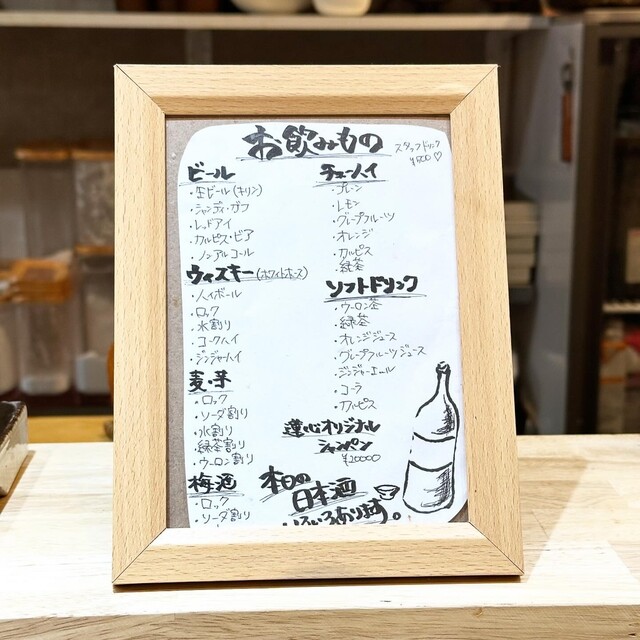 お飲みもの
スタッフドリンク
¥800♡
ビール
・生ビール(キリン)
・シャンディ・ガフ
・レッドアイ
・カルピス・ビア
・ノンアルコール
ウィスキー(ホワイトホース)
・ハイボール
・ロック
・水割り
・コークハイ
・ジンジャーハイ
麦・芋
・ロック
・ソーダ割り
・水割り
・緑茶割り
・ウーロン割り
梅酒
・ロック
・ソーダ割り
チューハイ
・プレーン
・レモン
・グレープフルーツ
・オレンジ
・カルピス
・緑茶
ソフトドリンク
・ウーロン茶
・緑茶
・オレンジジュース
・グレープフルーツジュース
・ジンジャーエール
・コーラ
・カルピス
蓮心オリジナル
シャンパン
¥20000
本日の
日本酒
いろいろあります。